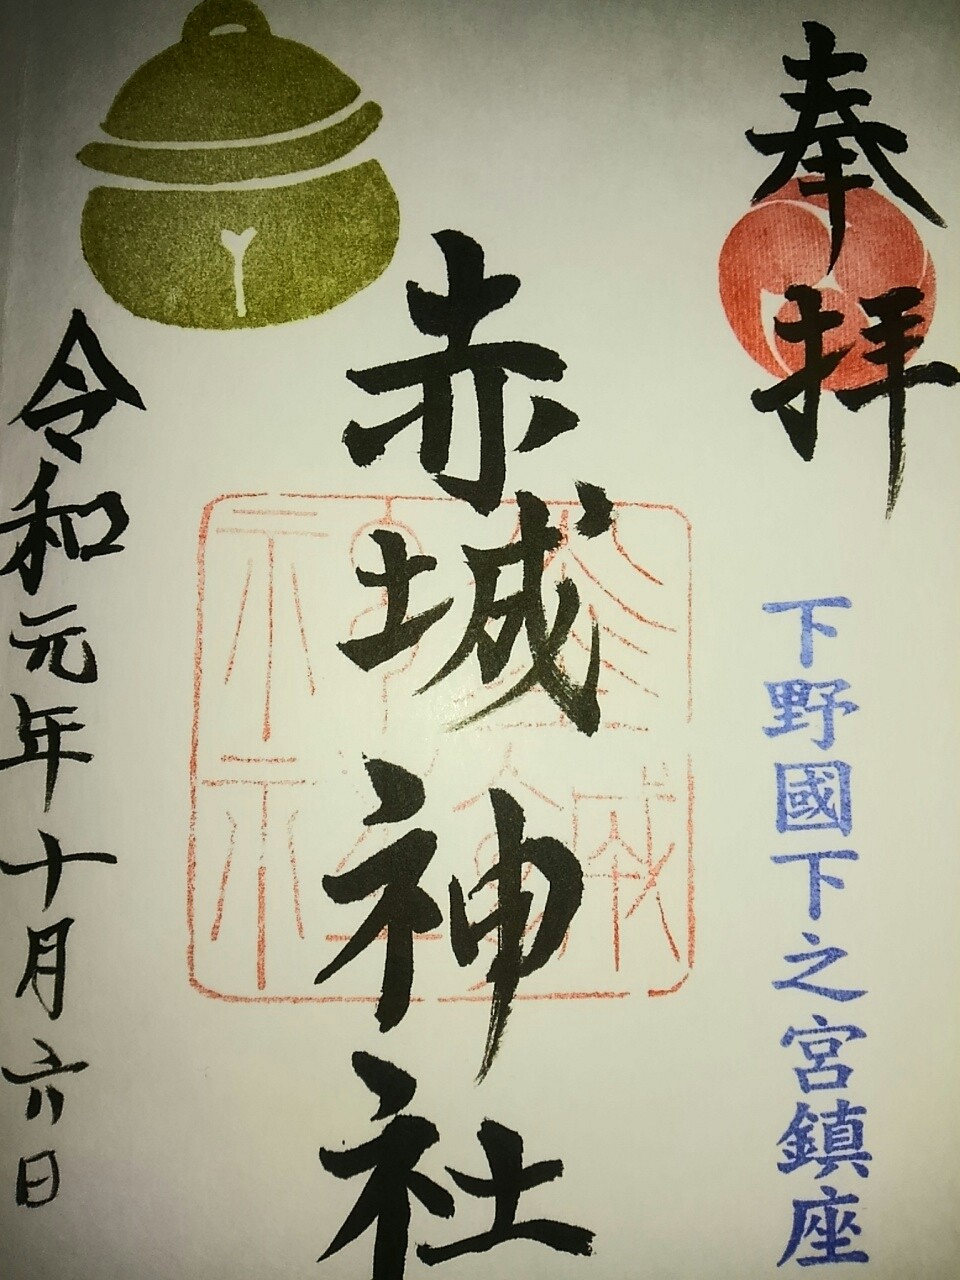 奉拝
下野國下之宮鎮座
赤城神社
令和元年十月六日